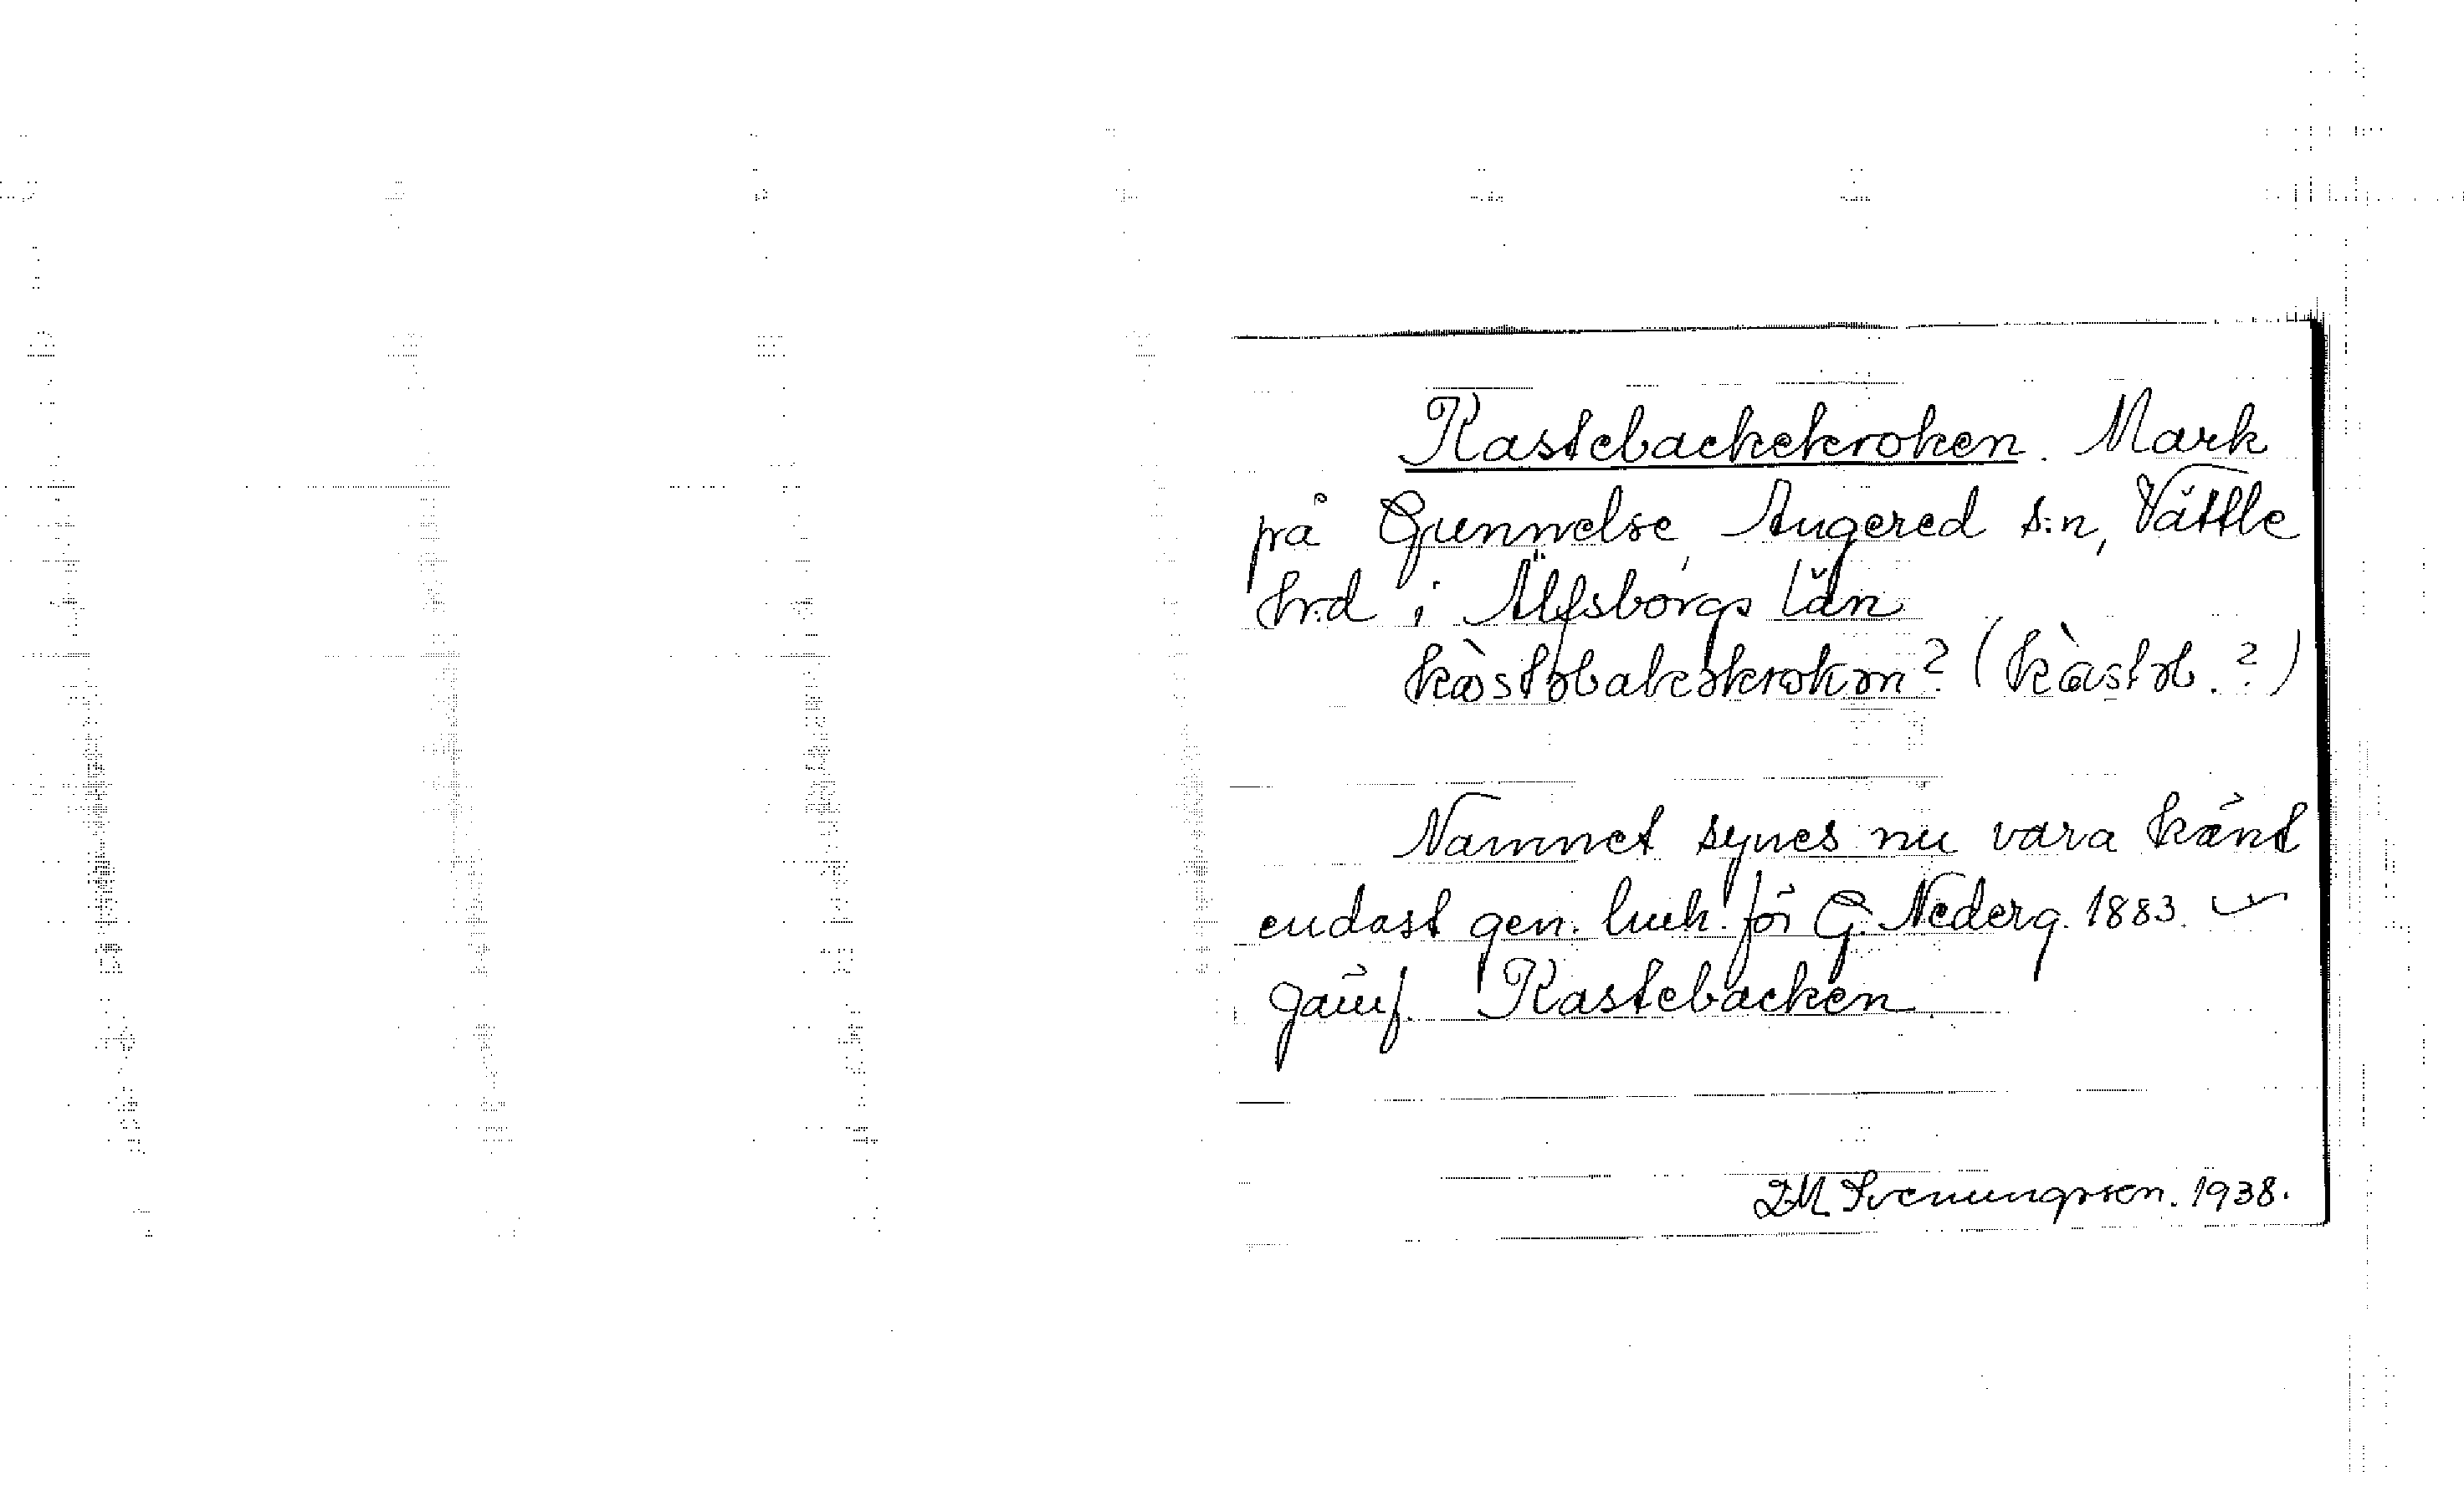 Kastebackekroken. Mark
på Gunnelse, Angered s:n, Vättle
hr.d i Älfsborgs län
(kàstəb.?)
Namnet synes nu vara känt
endast gen. luk. för G. Nederg. 1883.
Jämf. Kastebacken.
D.M. Svenungsson. 1938.